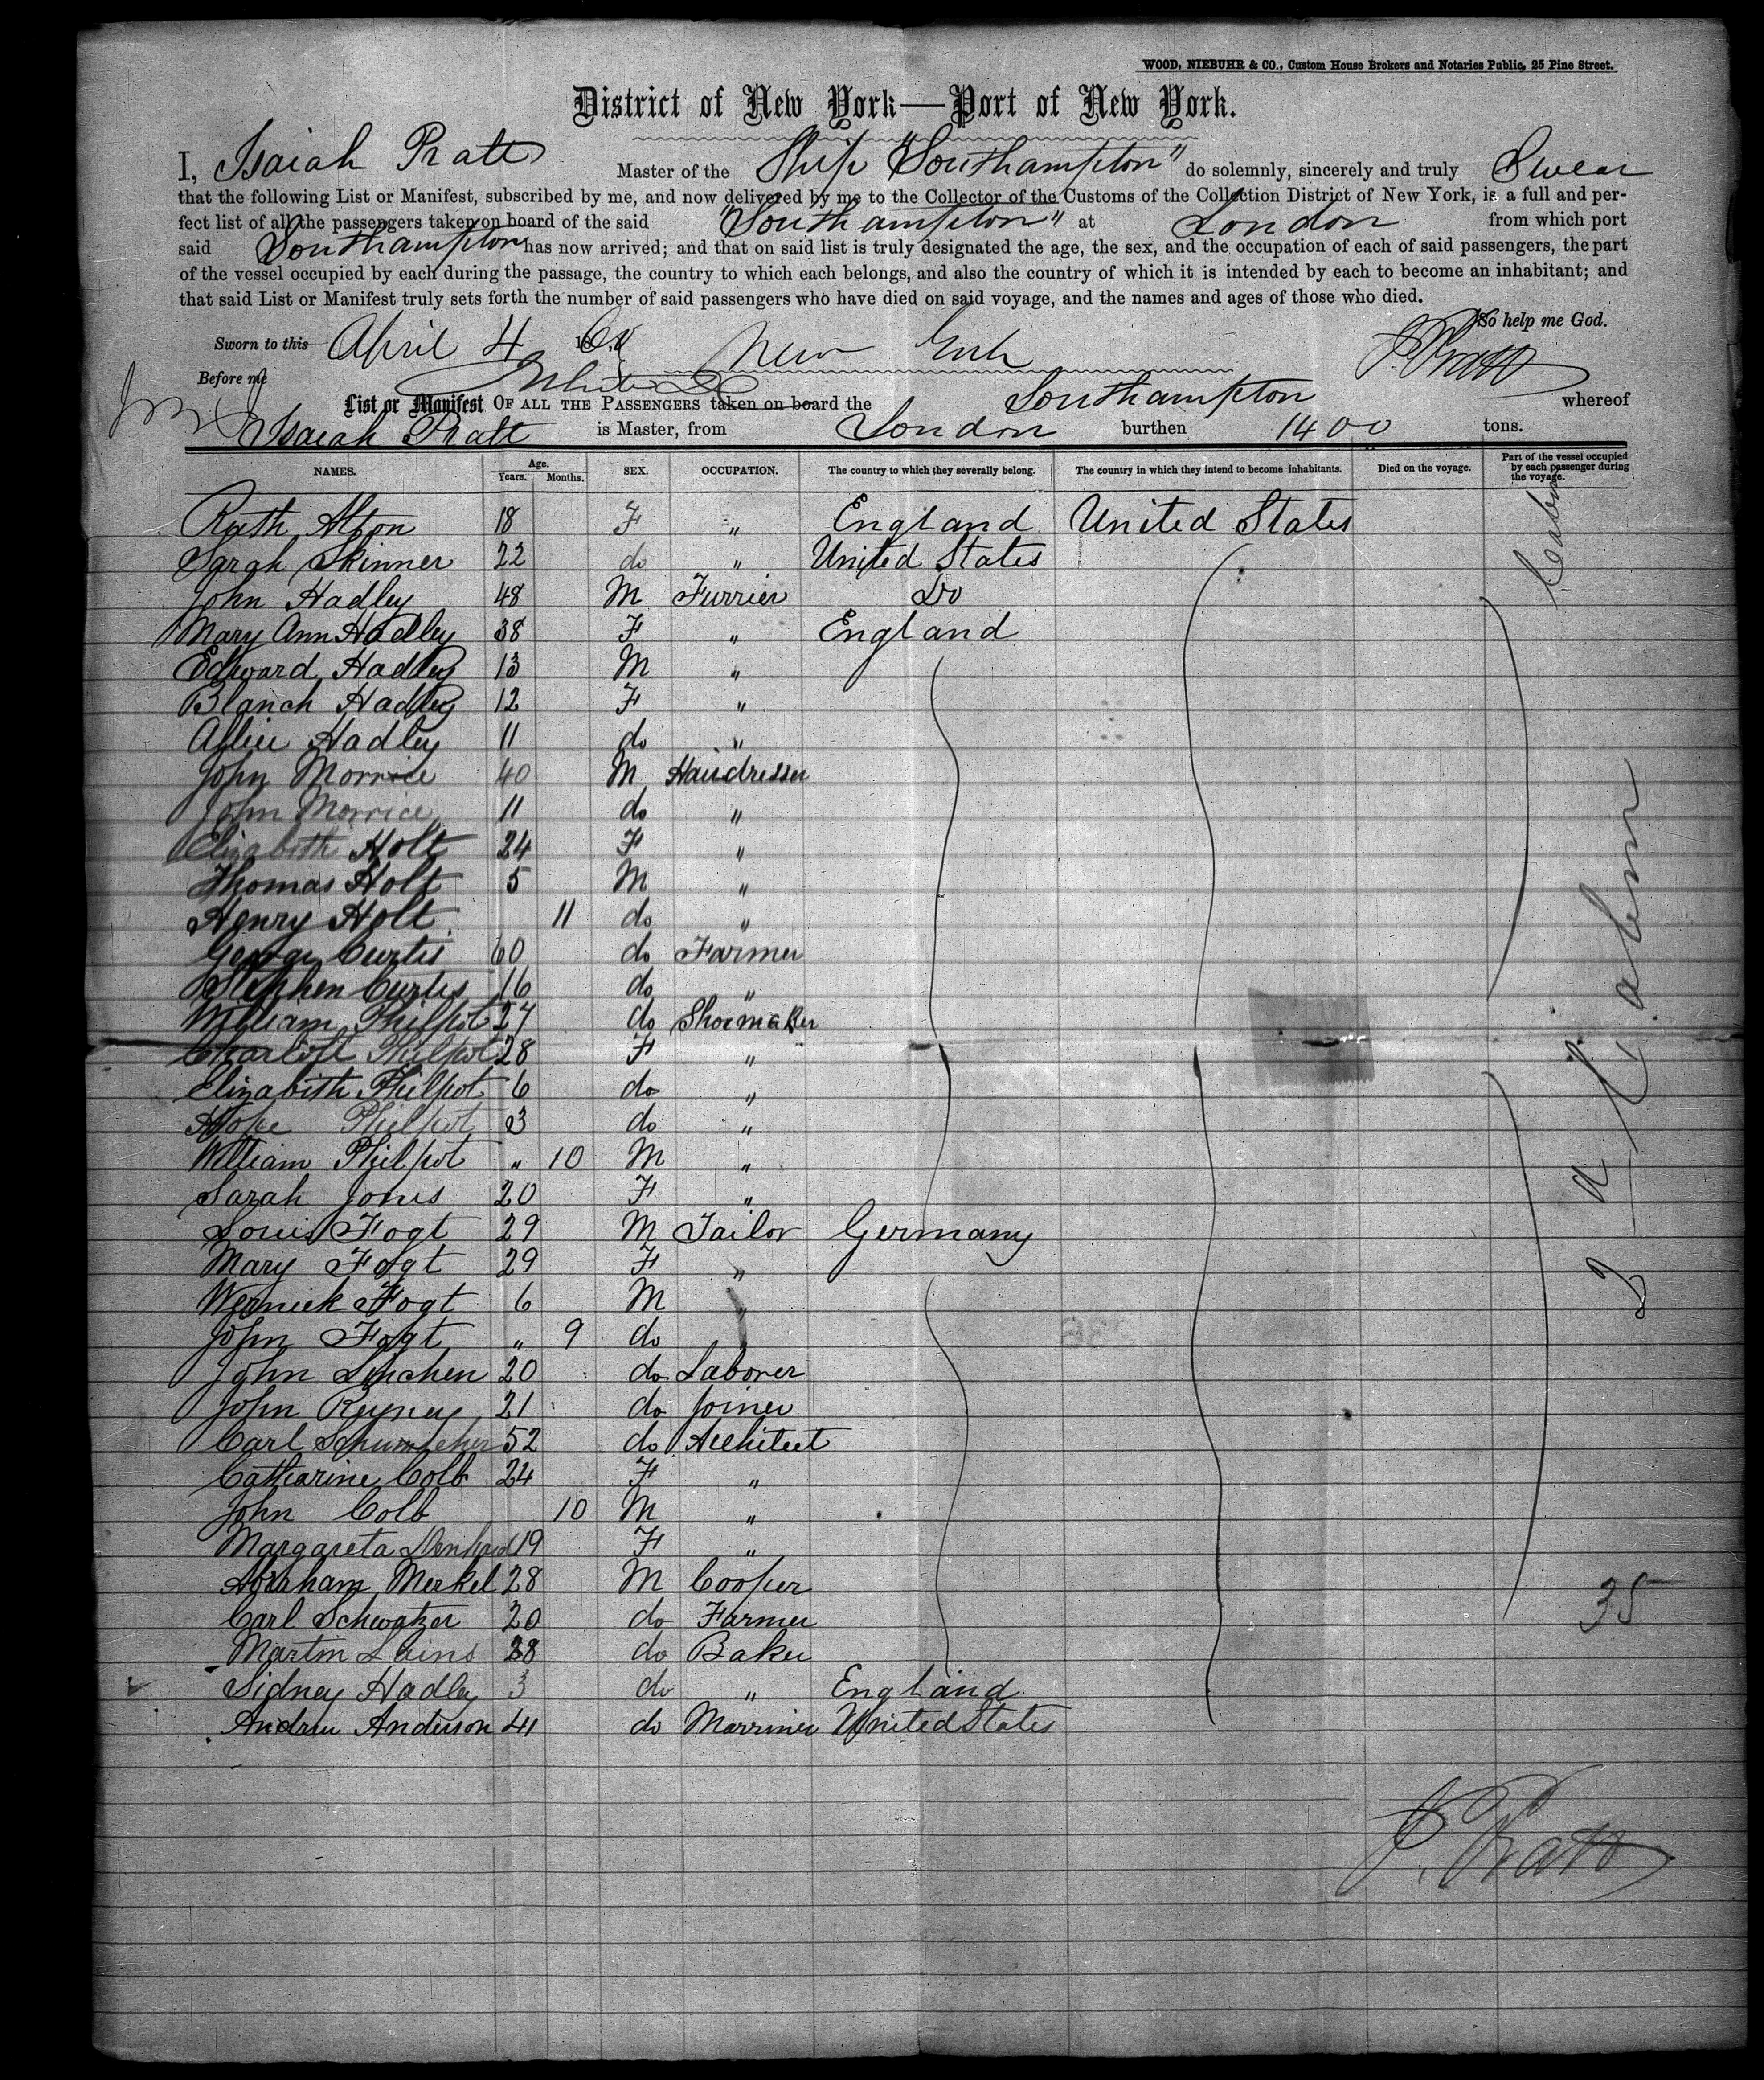 WOOD, NIEBUHR & CO., Custom House Brokers and Notaries Public, 25 Pine Street.
District of New York—Port of New York.
I, Isaiah Pratt Master of the Ship "Southampton" do solemnly, sincerely and truly Swear
that the following List or Manifest, subscribed by me, and now delivered by me to the Collector of the Customs of the Collection District of New York, is a full and per-
fect list of all the passengers taken on board of the said "Southampton" at London from which port
said Southampton has now arrived; and that on said list is truly designated the age, the sex, and the occupation of each of said passengers, the part
of the vessel occupied by each during the passage, the country to which each belongs, and also the country of which it is intended by each to become an inhabitant; and
that said List or Manifest truly sets forth the number of said passengers who have died on said voyage, and the names and ages of those who died.
So help me God.
Sworn to this April 4 I. Pratt
Before me
List or Manifest OF ALL THE PASSENGERS taken on board the Southampton whereof
Isaiah Pratt is Master, from London burthen 1400 tons.
NAMES. Age. Years. Months. SEX. OCCUPATION. The country to which they severally belong. The country in which they intend to become inhabitants. Died on the voyage. Part of the vessel occupied by each passenger during the voyage.
Ruth Alton 18 F " England United States Cabin
Sarah Skinner 22 do " United States
John Hadley 48 M Furrier Do
Mary Ann Hadley 38 F " England
Edward Hadley 13 M "
Blanch Hadley 12 F "
Allice Hadley 11 do "
John Morrice 40 M Hairdresser
John Morrice 11 do "
Elizabeth Holt 24 F "
Thomas Holt 5 M "
Henry Holt 11 do "
George Curtis 60 do Farmer
Stephen Curtis 16 do "
William Philpot 27 do Shoemaker
Charlott Philpot 28 F "
Elizabith Philpot 6 do "
Hope Philpot 3 do "
William Philpot " 10 M "
Sarah Jones 20 F "
Louis Fogt 29 M Tailor Germany
Mary Fogt 29 F "
Wernick Fogt 6 M "
John Fogt " 9 do
John Linchen 20 do Laborer
John Reyney 21 do Joiner
Carl 52 do Architect
Catharine Colb 24 F "
John Colb 10 M "
Margareta 19 F "
Abraham Merkel 28 M Cooper
Carl Schwatzer 20 do Farmer
Martin Lains 28 do Baker
Sidney Hadley 3 do " England
Andrew Anderson 41 do Marriner United States
2d Cabin
35
I. Pratt